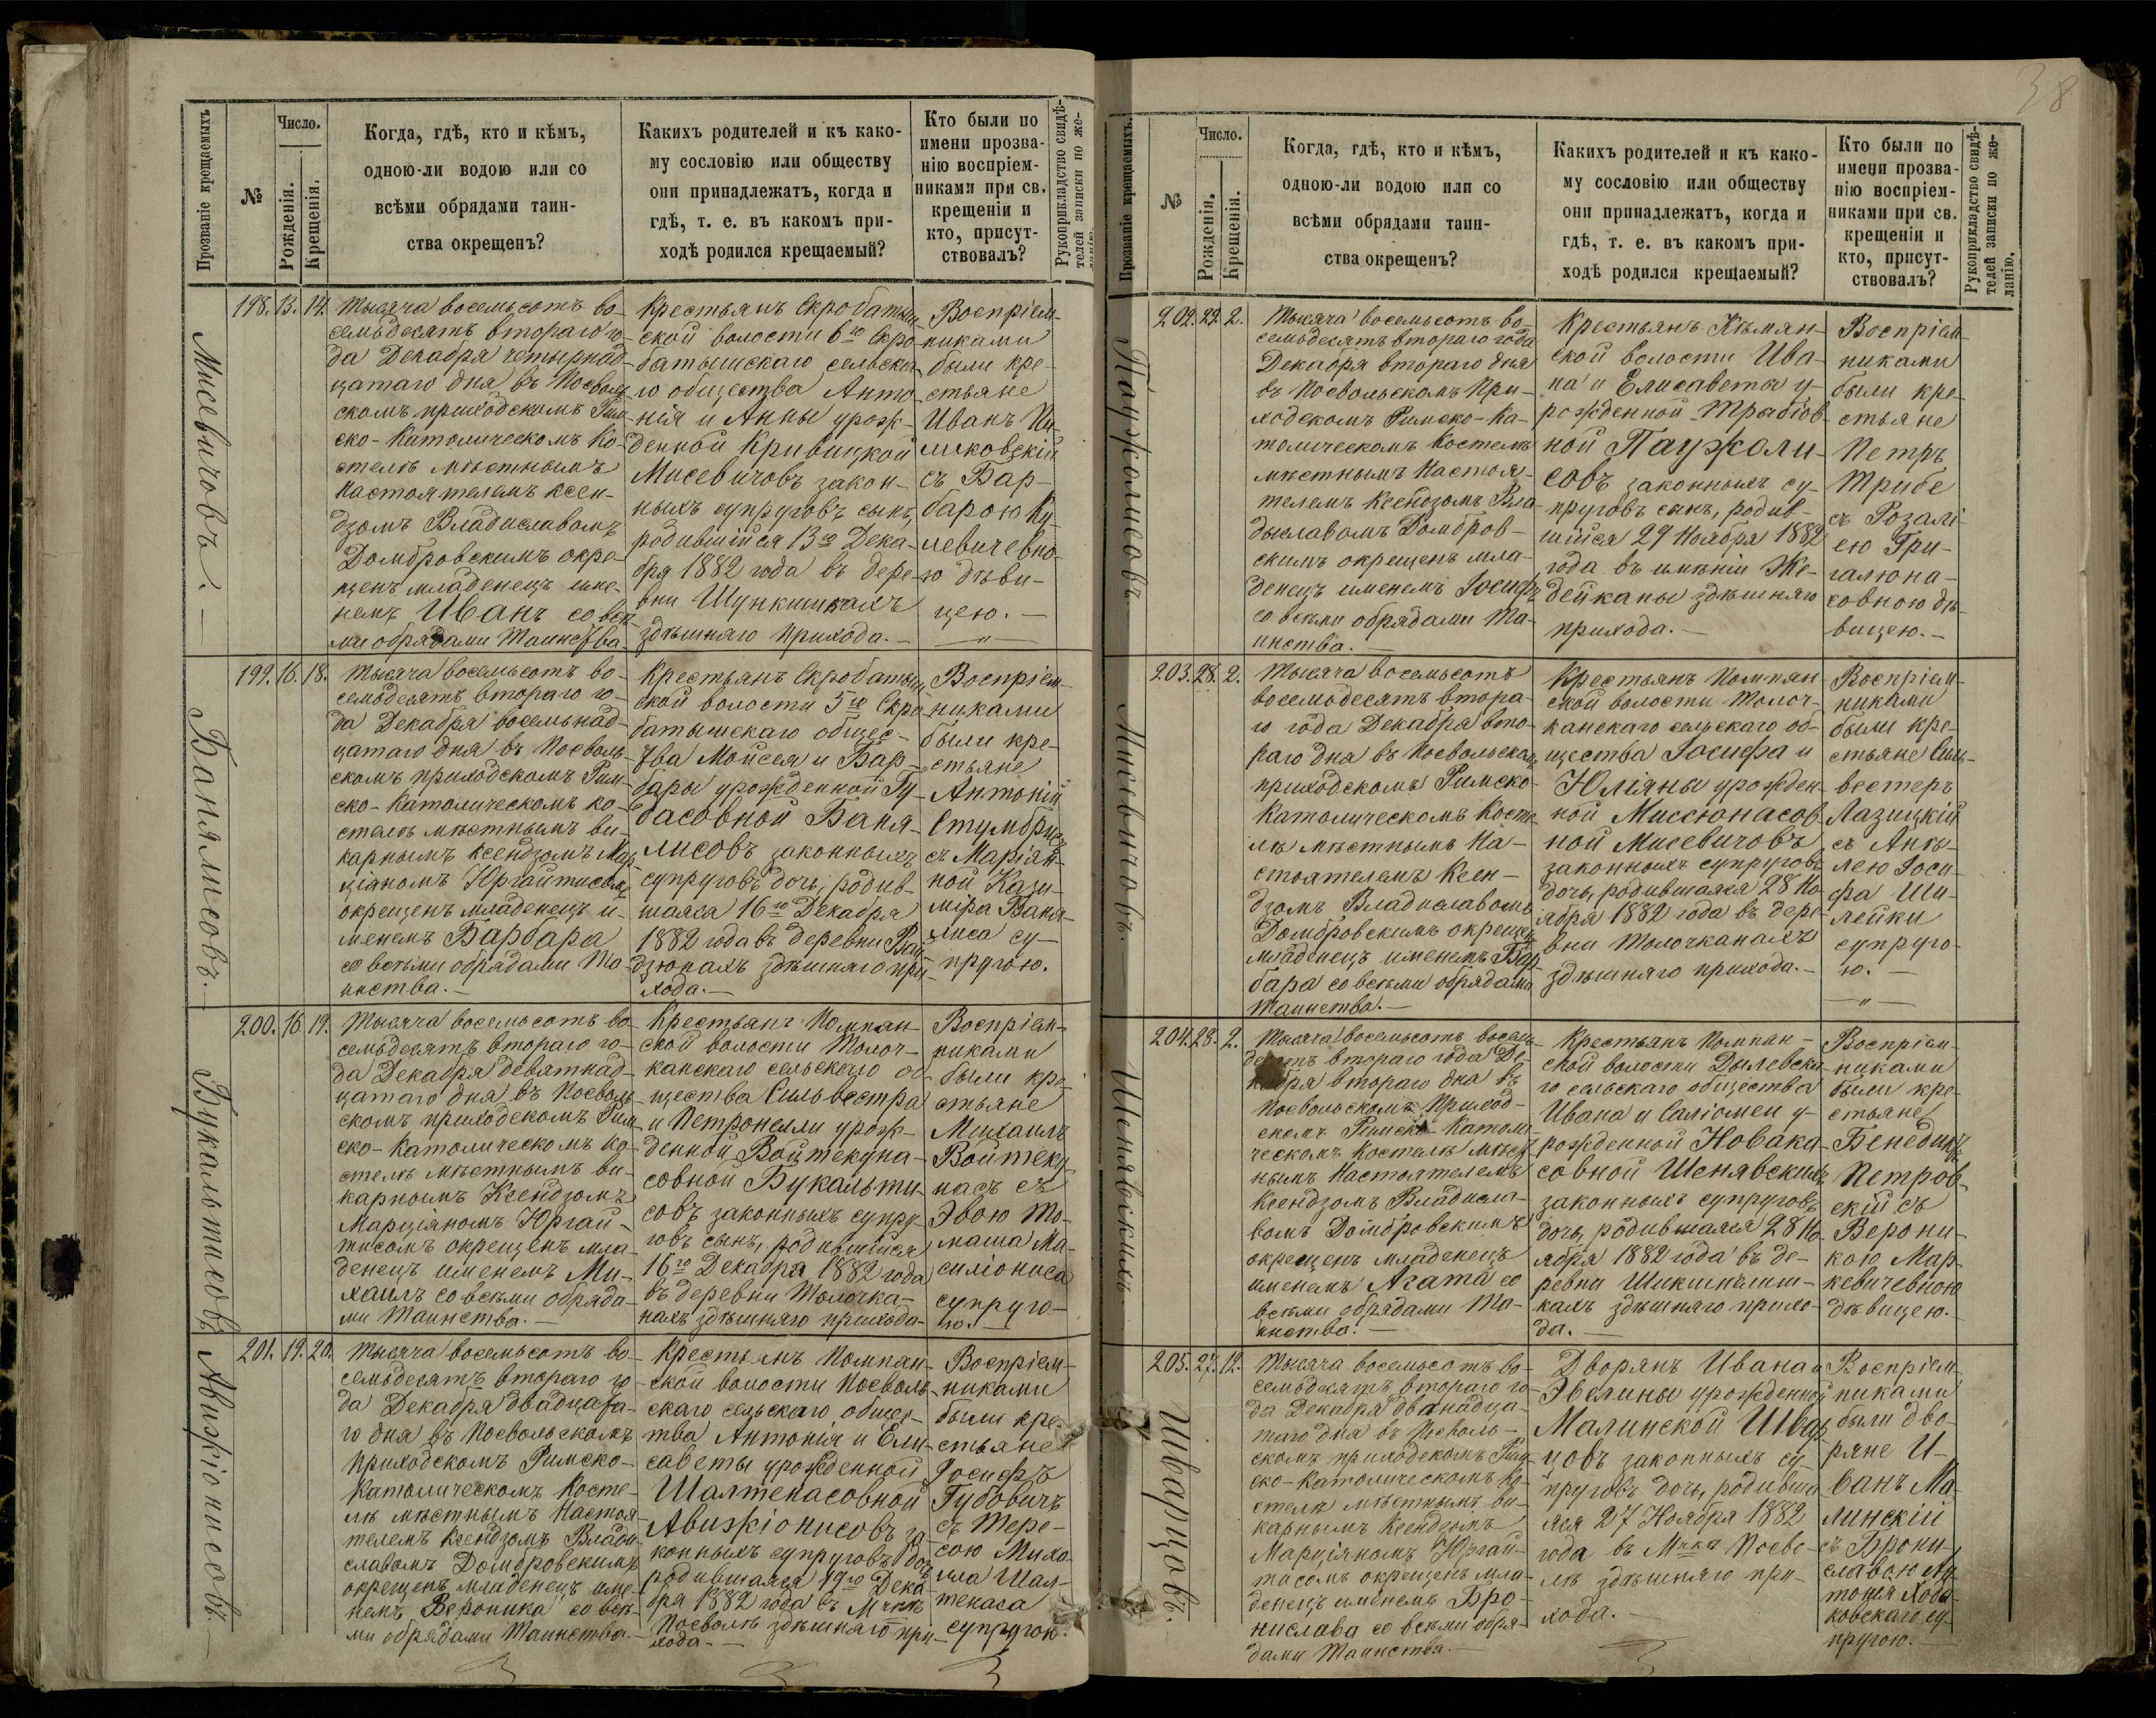 38
Прозваніе крещаемыхъ.
№
Число.
Рожденія.
Крещенія.
Когда, гдѣ, кто и кѣмъ,
одною-ли водою или со
всѣми обрядами таин-
ства окрещенъ?
Какихъ родителей и къ како-
му сословію или обществу
они принадлежатъ, когда и
гдѣ, т. е. въ какомъ при-
ходѣ родился крещаемый?
Кто были по
имени прозва-
нію воспріем-
никами при св.
крещеніи и
кто, присут-
ствовалъ?
Рукоприкладство свидѣ-
телей записки по же-
ланію.
Мисевичовъ.
198. 13. 14.
Тысяча восемьсотъ во-
семьдесятъ втораго го-
да Декабря четырнад-
цатаго дня въ Посволь-
скомъ приходскомъ Рим-
ско-Католическомъ Ко-
стелѣ мѣстнымъ
Настоятелемъ Ксен-
дзомъ Владиславомъ
Домбровскимъ окре-
щенъ младенецъ име-
немъ Иванъ со всѣ-
ми обрядами Таинства.
Крестьянъ Скробатыш-
ской волости 6го Скро-
батышскаго сельска-
го общества Анто-
нія и Анны урож-
денной Кривицкой
Мисевичовъ закон-
ныхъ супруговъ сынъ,
родившійся 13го Дека-
бря 1882 года въ дере-
вни Шункишкахъ
здѣшняго прихода.
Воспріем-
никами
были кре-
стьяне
Иванъ
съ Бар-
барою
дѣви-
цею.
Банялисовъ.
199. 16. 18.
Тысяча восемьсотъ во-
семьдесятъ втораго го-
да Декабря восемьнад-
цатаго дня въ Посволь-
скомъ приходскомъ Рим-
ско-Католическомъ ко-
стелѣ мѣстнымъ ви-
карнымъ Ксендзомъ Мар-
ціяномъ Юргайтисомъ
окрещенъ младенецъ и-
менемъ Барбара
со всѣми обрядами Та-
инства.
Крестьянъ Скробатыш-
ской волости 5го Скро-
батышскаго общес-
тва Мойсея и Бар-
бары урожденной Гу-
басовной Баня-
лисовъ законныхъ
супруговъ дочь, родив-
шаяся 16го Декабря
1882 года въ деревни Вай-
дзюнахъ здѣшняго при-
хода.
Воспріем-
никами
были кре-
стьяне
Антоній
Стумбрисъ
съ Маріян-
ной Кази-
міра Баня-
лиса су-
пругою.
Букальтисовъ
200. 16. 19.
Тысяча восемьсотъ во-
семьдесятъ втораго го-
да Декабря девятнад-
цатаго дня въ Посволь-
скомъ приходскомъ Рим-
ско-Католическомъ ко-
стелѣ мѣстнымъ ви-
карнымъ Ксендзомъ
Марціяномъ Юргай-
тисомъ окрещенъ мла-
денецъ именемъ Ми-
хаилъ со всѣми обряда-
ми Таинства.
Крестьянъ Помпян-
ской волости Молоч-
канскаго сельскаго об-
щества Сильвестра
и Петронелли урож-
денной Войтекуна-
совной Букальти-
совъ законныхъ супру-
говъ сынъ, родившійся
16го Декабря 1882 года
въ деревни Молочка-
нахъ здѣшняго прихода.
Воспріем-
никами
были кре-
стьяне
Михаилъ
Войтеку-
насъ съ
Эвою То-
маша Ма-
силіониса
супруго-
ю.
Авижіонисовъ
201. 19. 20.
Тысяча восемьсотъ во-
семьдесятъ втораго го-
да Декабря двадцата-
го дня въ Посвольскомъ
приходскомъ Римско-
Католическомъ Косте-
лѣ мѣстнымъ Настоя-
телемъ Ксендзомъ Влади-
славомъ Домбровскимъ
окрещенъ младенецъ име-
немъ Вероника со всѣ-
ми обрядами Таинства.
Крестьянъ Помпян-
ской волости Посволь-
скаго сельскаго общес-
тва Антонія и Ели-
саветы урожденной
Шалтенасовной
Авижіонисовъ за-
конныхъ супруговъ дочь,
родившаяся 19го Дека-
бря 1882 года въ Мчкѣ
Посволѣ здѣшняго при-
хода.
Воспріем-
никами
были кре-
стьяне
Іосифъ
Губовичъ
съ Тере-
сою Миха-
ила Шал-
тенаса
супругою.
Прозваніе крещаемыхъ.
№
Число.
Рожденія.
Крещенія.
Когда, гдѣ, кто и кѣмъ,
одною-ли водою или со
всѣми обрядами таин-
ства окрещенъ?
Какихъ родителей и къ како-
му сословію или обществу
они принадлежатъ, когда и
гдѣ, т. е. въ какомъ при-
ходѣ родился крещаемый?
Кто были по
имени прозва-
нію воспріем-
никами при св.
крещеніи и
кто, присут-
ствовалъ?
Рукоприкладство свидѣ-
телей записки по же-
ланію.
Паужолисовъ.
202. 29. 2.
Тысяча восемьсотъ во-
семьдесятъ втораго года
Декабря втораго дня
въ Посвольскомъ При-
ходскомъ Римско-Ка-
толическомъ Костелѣ
мѣстнымъ Настоя-
телемъ Ксендзомъ Вла-
дыславомъ Домбров-
скимъ окрещенъ мла-
денецъ именемъ Іосифъ
со всѣми обрядами Та-
инства.
Крестьянъ Кѣмян-
ской волости Ива-
на и Елисаветы у-
рожденной Трыбов-
ной Паужоли-
совъ законныхъ су-
пруговъ сынъ, родив-
шійся 29 Ноября 1882
года въ имѣніи Же-
дейканы здѣшняго
прихода.
Воспріем-
никами
были кре-
стьяне
Петръ
Трибе
съ Розалі-
ею Гри-
галюна-
совною дѣ-
вицею.
Мисевичовъ.
203. 28. 2.
Тысяча восемьсотъ
восемьдесятъ втора-
го года Декабря вто-
раго дня въ Посвольскомъ
приходскомъ Римско-
Католическомъ Косте-
лѣ мѣстнымъ На-
стоятелемъ Ксен-
дзомъ Владиславомъ
Домбровскимъ окрещенъ
младенецъ именемъ Бар-
бара со всѣми обрядами
Таинства.
Крестьянъ Помпян-
ской волости Молоч-
канскаго сельскаго об-
щества Іосифа и
Юліяны урожден-
ной Миссюнасов-
ной Мисевичовъ
законныхъ супруговъ
дочь, родившаяся 28 Но-
ября 1882 года въ дере-
вни Молочканахъ
здѣшняго прихода.
Воспріем-
никами
были кре-
стьяне Силь-
вестеръ
Лазицкій
съ Анѣ-
лею Іоси-
фа Ши-
лейки
супруго-
ю.
Шенявскихъ.
204. 28. 2.
Тысяча восемьсотъ восемь-
десятъ втораго года Де-
кабря втораго дня въ
Посвольскомъ Приход-
скомъ Римско-Католи-
ческомъ Костелѣ мѣст-
нымъ Настоятелемъ
Ксендзомъ Владисла-
вомъ Домбровскимъ
окрещенъ младенецъ
именемъ Агата со
всѣми обрядами Та-
инства.
Крестьянъ Помпян-
ской волости Дылевска-
го сельскаго общества
Ивана и Саліомеи у-
рожденной Новака-
совной Шенявскихъ
законныхъ супруговъ
дочь, родившаяся 28 Но-
ября 1882 года въ де-
ревни
кахъ здѣшняго прихо-
да.
Воспріем-
никами
были кре-
стьяне
Бенедиктъ
Петров-
скій съ
Верони-
кою Мар-
кевичевною
дѣвицею.
Шварцовъ.
205. 27. 12.
Тысяча восемьсотъ во-
семьдесятъ втораго го-
да Декабря двѣнадца-
таго дня въ Посволь-
скомъ приходскомъ Рим-
ско-Католическомъ Ко-
стелѣ мѣстнымъ ви-
карнымъ Ксендзомъ
Марціяномъ Юргай-
тисомъ окрещенъ мла-
денецъ именемъ Бро-
нислава со всѣми обря-
дами Таинства.
Дворянъ Ивана и
Эвелины урожденной
Малинской Швар-
цовъ законныхъ су-
пруговъ дочь, родивша-
яся 27 Ноября 1882
года въ Мчкѣ Посво-
лѣ здѣшняго при-
хода.
Воспріем-
никами
были дво-
ряне И-
ванъ Ма-
линскій
съ Брони-
славою Ан-
тонія Хода-
ковскаго су-
пругою.